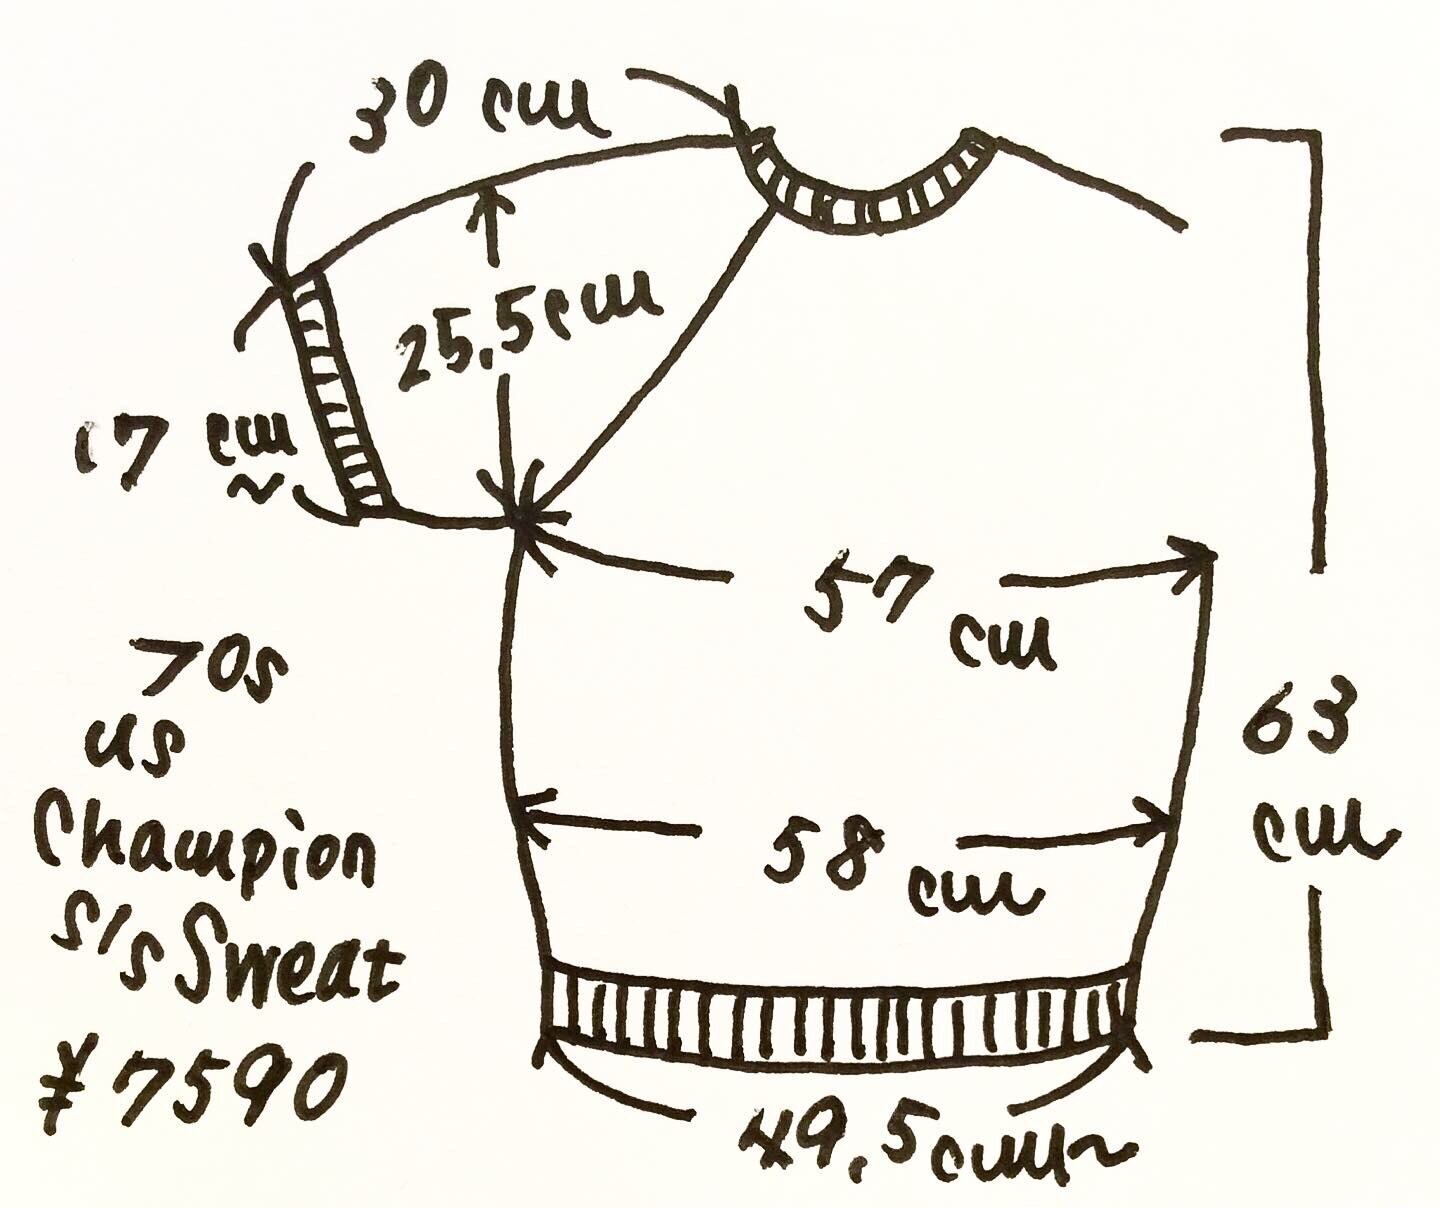 30 cm
25.5cm
17 cm~
57 cm
70s
US
Champion
S/S Sweat
¥7590
63
cm
58 cm
49.5cm~